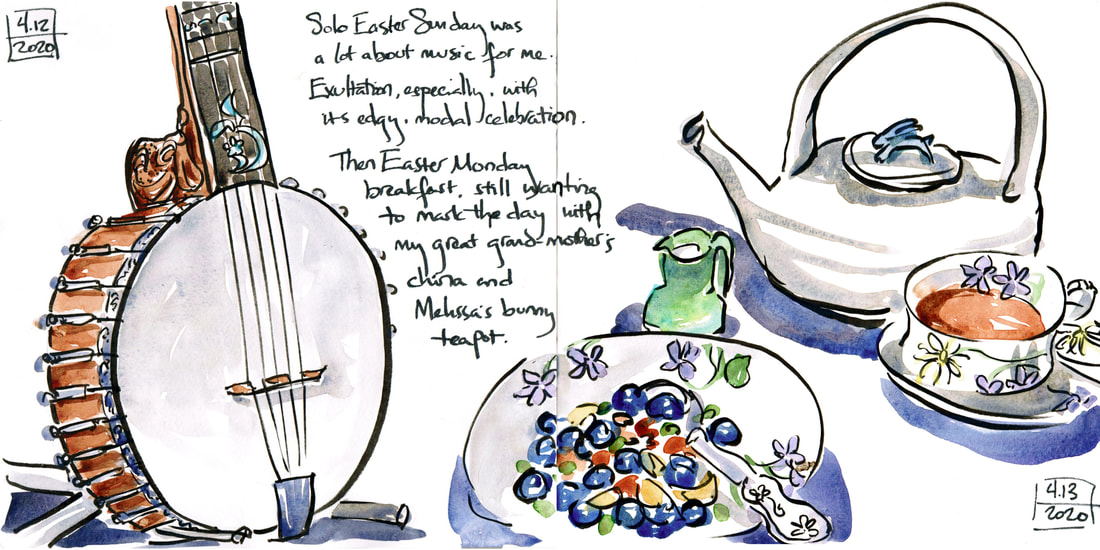 4.12
2020
Solo Easter Sunday was
a lot about music for me.
Exultation, especially, with
its edgy, modal celebration.
Then Easter Monday
breakfast, still wanting
to mark the day with
my great grand-mother's
china and
Melissa's bunny
teapot.
4.13
2020